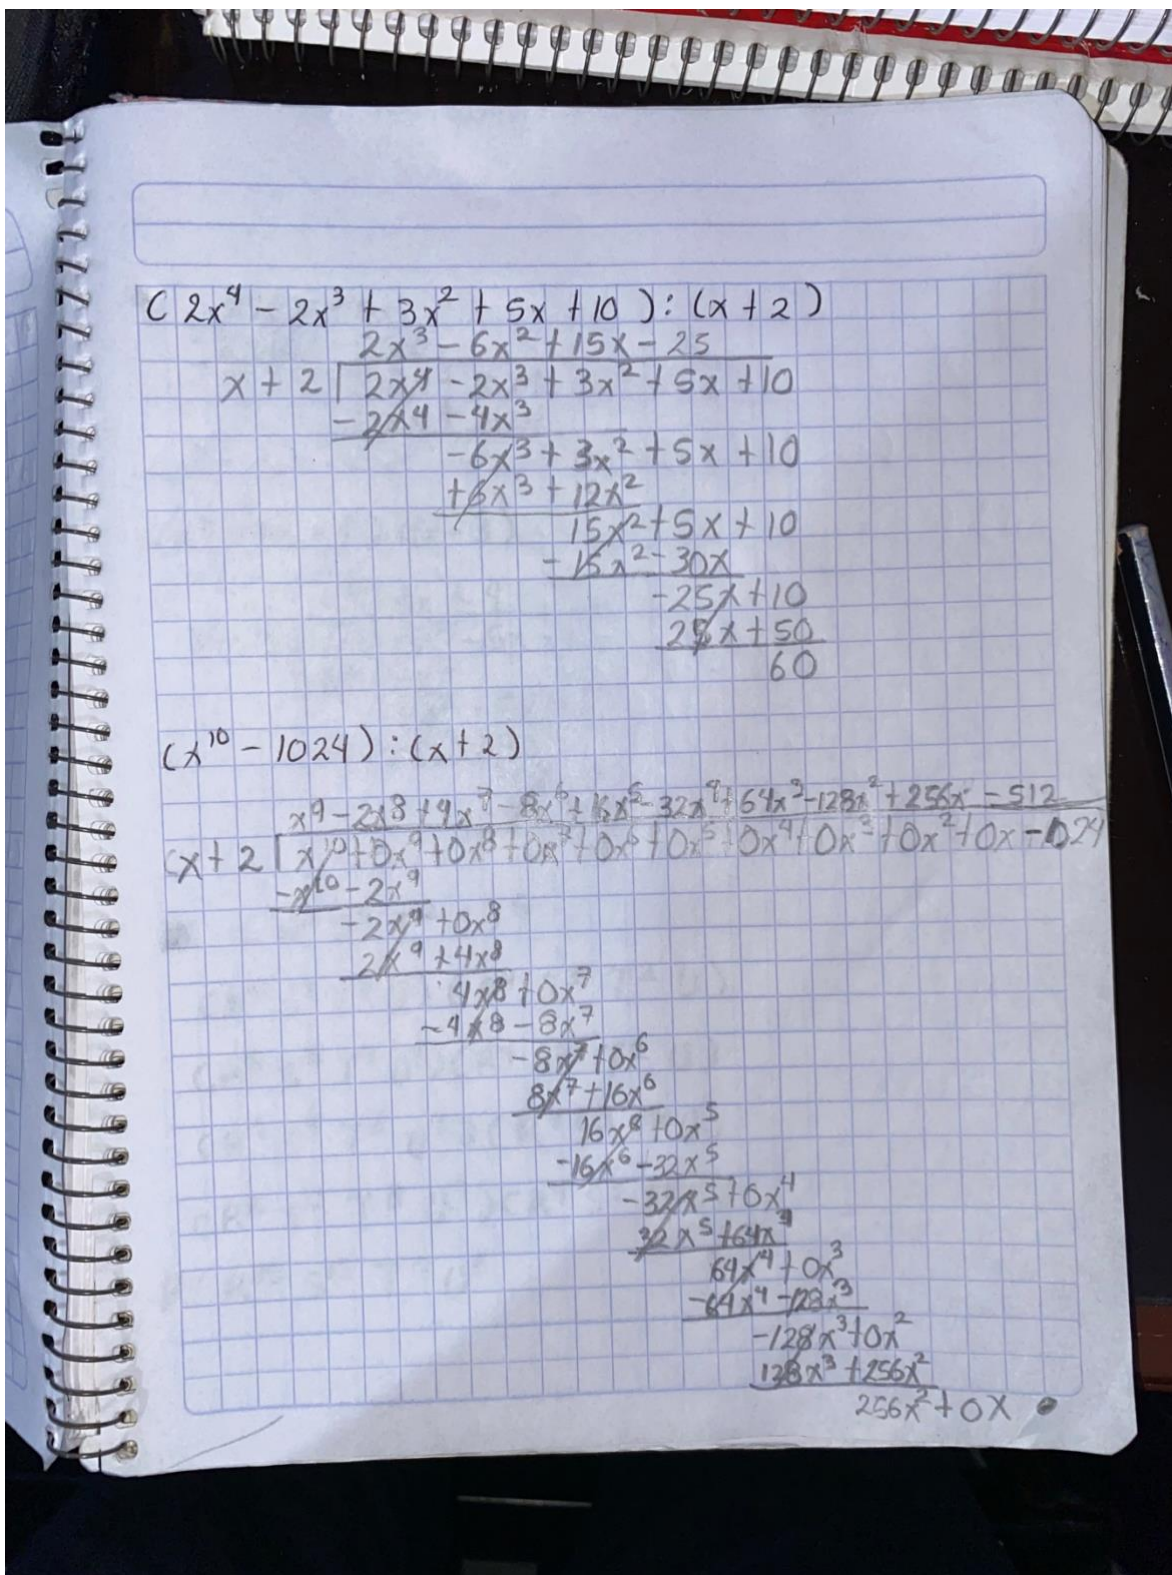 ( 2x⁴ - 2x³ + 3x² + 5x + 10 ) : (x + 2 )
2x³ - 6x² + 15x - 25
x + 2 | 2x⁴ - 2x³ + 3x² + 5x + 10
- 2x⁴ - 4x³
-6x³ + 3x² + 5x + 10
+6x³ + 12x²
15x² + 5x + 10
- 15x² - 30x
-25x + 10
25x + 50
60
(x¹⁰ - 1024) : (x + 2)
x⁹ - 2x⁸ + 4x⁷ - 8x⁶ + 16x⁵ - 32x⁴ + 64x³ - 128x² + 256x - 512
x + 2 | x¹⁰ + 0x⁹ + 0x⁸ + 0x⁷ + 0x⁶ + 0x⁵ + 0x⁴ + 0x³ + 0x² + 0x - 1024
-x¹⁰ - 2x⁹
-2x⁹ + 0x⁸
2x⁹ + 4x⁸
4x⁸ + 0x⁷
-4x⁸ - 8x⁷
-8x⁷ + 0x⁶
8x⁷ + 16x⁶
16x⁶ + 0x⁵
-16x⁶ - 32x⁵
-32x⁵ + 0x⁴
32x⁵ + 64x⁴
64x⁴ + 0x³
-64x⁴ - 128x³
-128x³ + 0x²
128x³ + 256x²
256x² + 0x